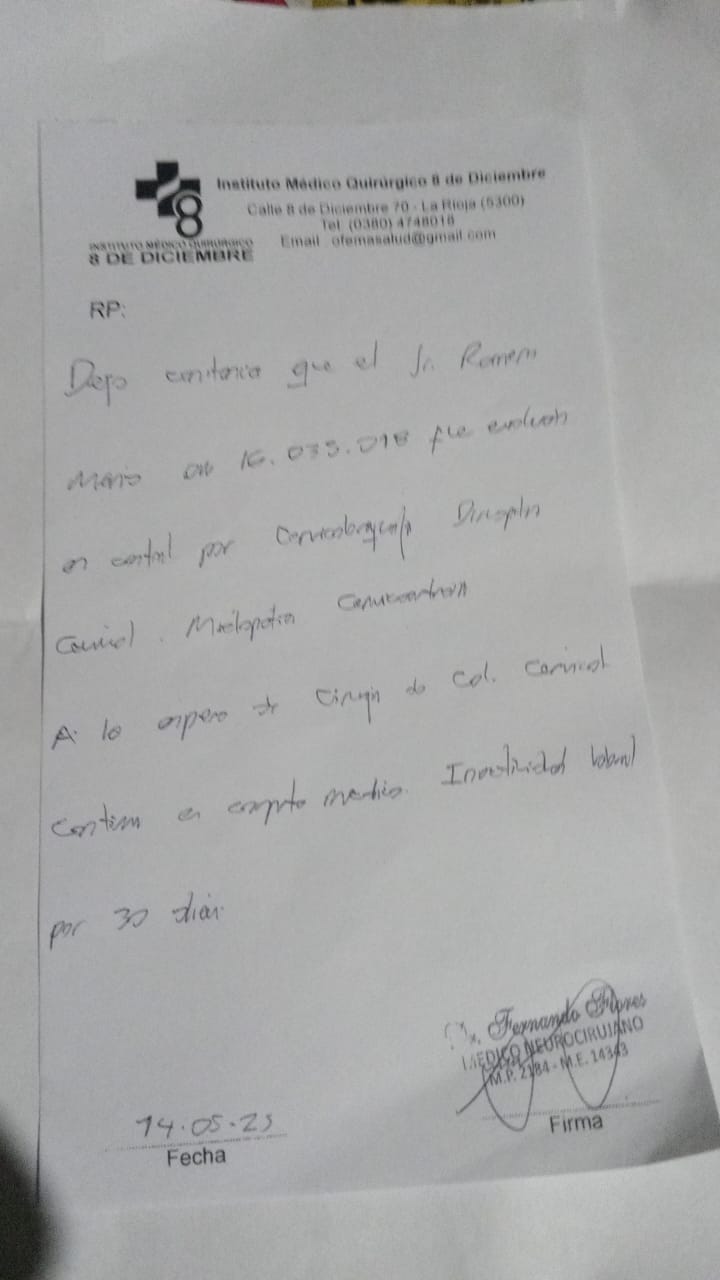 Instituto Médico Quirúrgico 8 de Diciembre
Calle 8 de Diciembre 70 - La Rioja (5300)
Tel: (0380) 4748018
Email: ofemasalud@gmail.com
8
INSTITUTO MÉDICO QUIRÚRGICO
8 DE DICIEMBRE
RP:
Dejo constancia que el Sr. Romero
Mario 16.035.018 fue
en control por
Cervical. Mielopatia
A la espera de Cirugia de Col. Cervical
Continua en reposo Inactividad laboral
por 30 dias.
Dr. Fernando Flores
MEDICO NEUROCIRUJANO
M.P. 2184 - M.E. 14343
14.05.25
Fecha
Firma